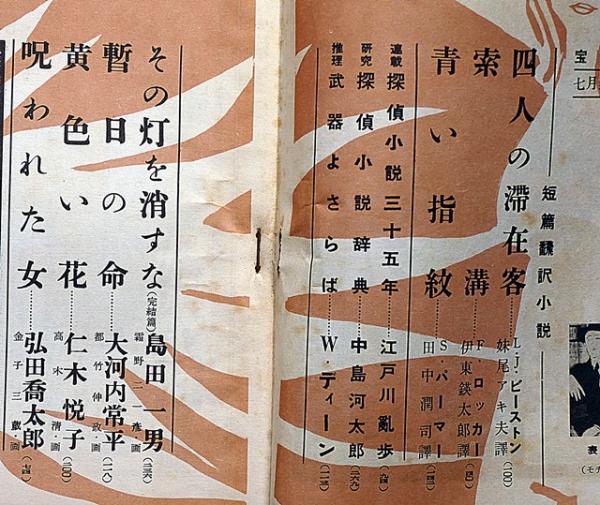 宝
七月
短篇飜訳小説
四人の滞在客……L・J・ビーストン
妹尾アキ夫譯
索溝……F・ロッカー
伊東鍈太郎譯
青い指紋……S・パーマー
田中潤司譯
連載 探偵小説三十五年……江戸川亂歩
研究 探偵小説辞典……中島河太郎
推理 武器よさらば……W・ディーン
その灯を消すな(完結篇)島田一男
霜野二一彦・画
暫日の命……大河内常平
都竹伸政・画
黄色い花……仁木悦子
高木清・画
呪われた女……弘田喬太郎
金子三蔵・画
表
(モデ